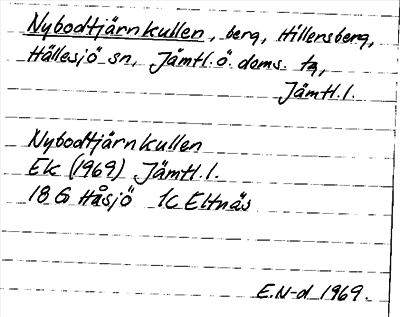 Nybodtjärnkullen, berg, Hillensberg,
Hällesjö sn, Jämtl. ö. doms. tg,
Jämtl. l.
Nybodtjärnkullen
Ek (1969) Jämtl. l.
18 G Håsjö 1c Eltnäs
E.N-d 1969.